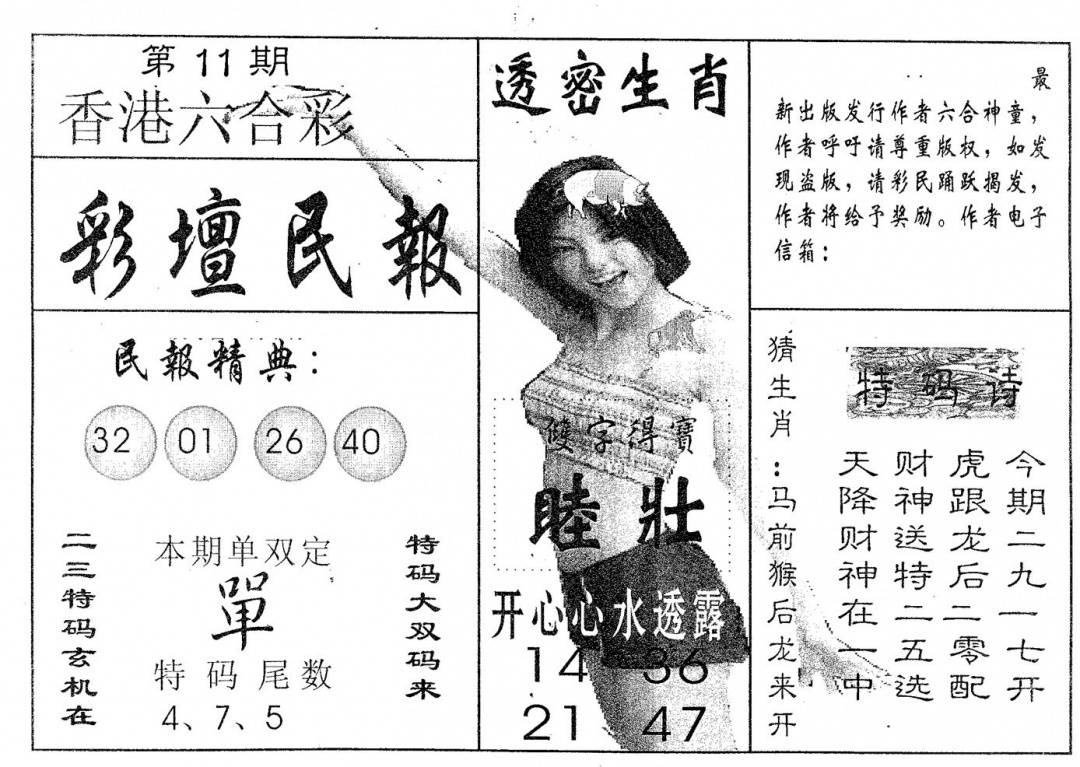 第11期
香港六合彩
彩壇民報
民報精典：
32 01 26 40
二三特码玄机在
本期单双定
單
特码尾数
4、7、5
特码大双码来
透密生肖
雙字得寶
睦壯
开心心水透露
14 36
21 47
最
新出版发行作者六合神童，
作者呼吁请尊重版权，如发
现盗版，请彩民踊跃揭发，
作者将给予奖励。作者电子
信箱：
猜生肖：马前猴后龙来开
特码诗
今期二九一七开
虎跟龙后二零配
财神送特二五选
天降财神在一中